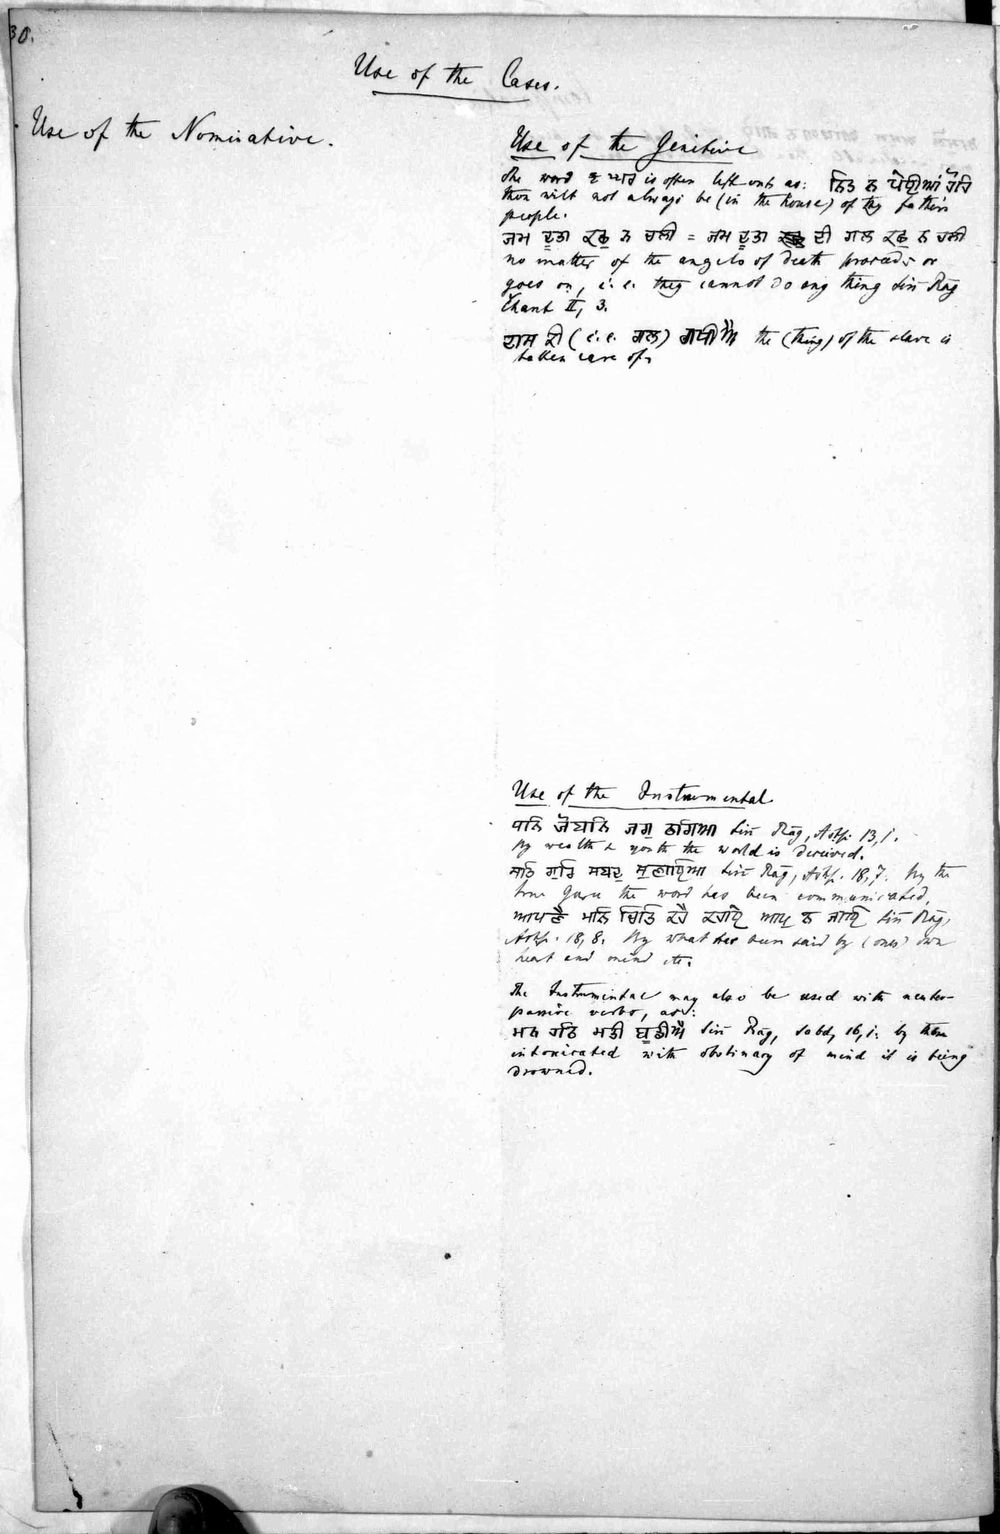 30.
Use of the Cases.
Use of the Nominative.
Use of the Genitive
The word ਘਰ is often left out as: ਨਿਤ ਨ ਪੇਈਆਂ ਹੋਰਿ
thou wilt not always be (in the house) of thy father's
people.
ਜਮ ਦੂਤਾ ਕਛੁ ਨ ਚਲੀ = ਜਮ ਦੂਤਾ ਦੀ ਗਲ ਕਛੁ ਨ ਚਲੀ
no matter of the angels of death proceeds or
goes on, i.e. they cannot do any thing Siri Rāg
Chant II, 3.
ਦਾਸ ਕੀ (i.e. ਗਲ) the (thing) of the slave is
taken care of.
Use of the Instrumental
ਧਨਿ ਜੋਬਨਿ ਜਗੁ ਠਗਿਆ Siri Rāg, Asṭp. 13,1.
By wealth & youth the world is deceived.
ਸਤਿ ਗੁਰਿ ਸਬਦੁ ਸੁਣਾਇਆ Siri Rāg, Asṭp. 18,7. by the
true Guru the word has been communicated.
ਆਪਣੈ ਮਨਿ ਚਿਤਿ ਕਹੈ ਕਹਾਏ ਆਪੁ ਨ ਜਾਇ Siri Rāg,
Asṭp. 18,8. By what has been said by (ones) own
heart and mind etc.
The Instrumental may also be used with neuter-
passive verbs, as:
ਮਨ ਹਠਿ ਮਤੀ ਬੂਡੀਐ Siri Rāg, Sabd, 16,1. by
intoxicated with obstinacy of mind it is being
drowned.